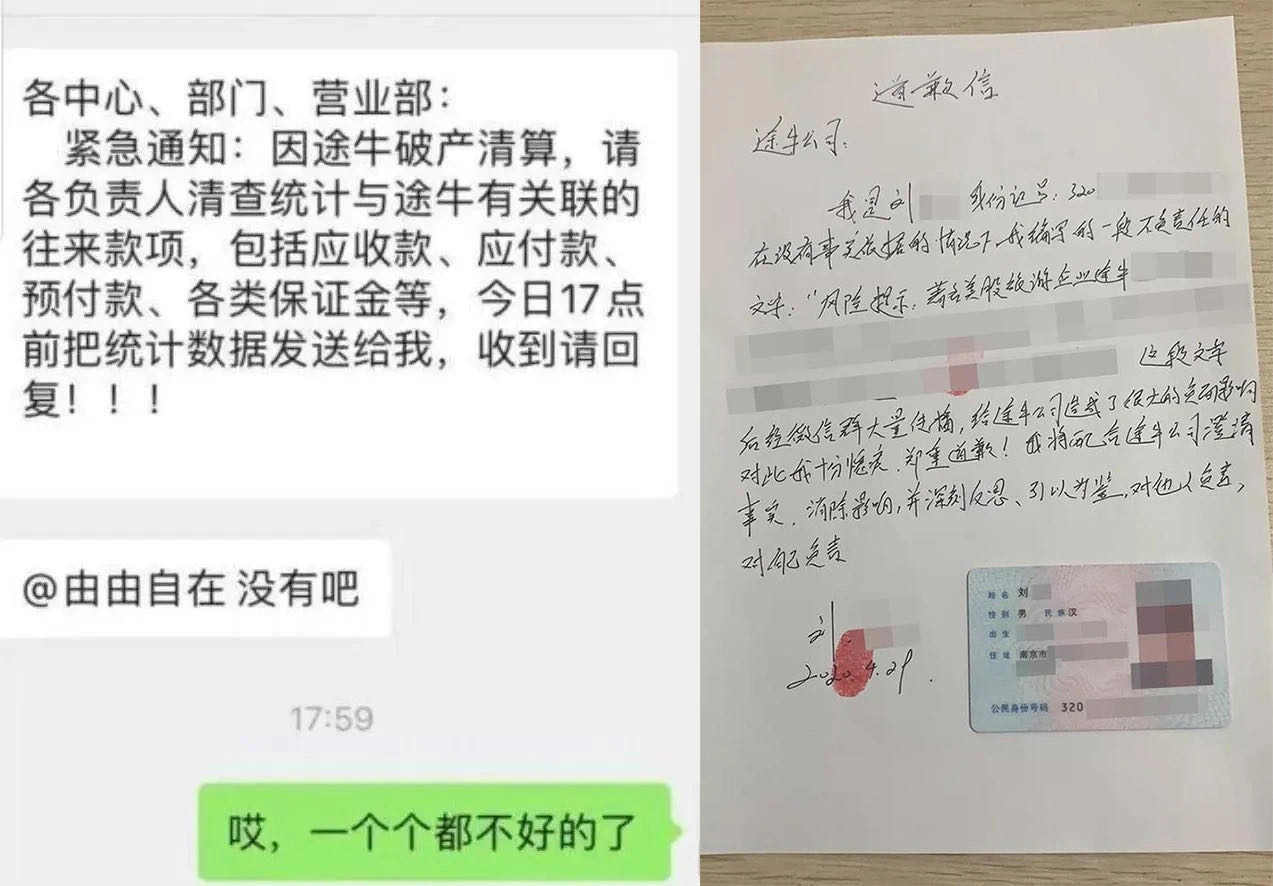 各中心、部门、营业部：
紧急通知：因途牛破产清算，请
各负责人清查统计与途牛有关联的
往来款项，包括应收款、应付款、
预付款、各类保证金等，今日17点
前把统计数据发送给我，收到请回
复！！！
@由由自在 没有吧
17:59
哎，一个个都不好的了
道歉信
途牛公司：
我是刘 身份证号：320
在没有事实依据的情况下，我编写的一段不负责任的
文字："风险提示：著名美股旅游企业途牛
这段文字
后经微信群大量传播，给途牛公司造成了很大的负面影响
对此我十分愧疚，郑重道歉！我将配合途牛公司澄清
事实，消除影响，并深刻反思、引以为鉴，对他人负责，
对自己负责
刘
2020.4.29.
姓名 刘
性别 男 民族 汉
出生
住址 南京市
公民身份号码 320